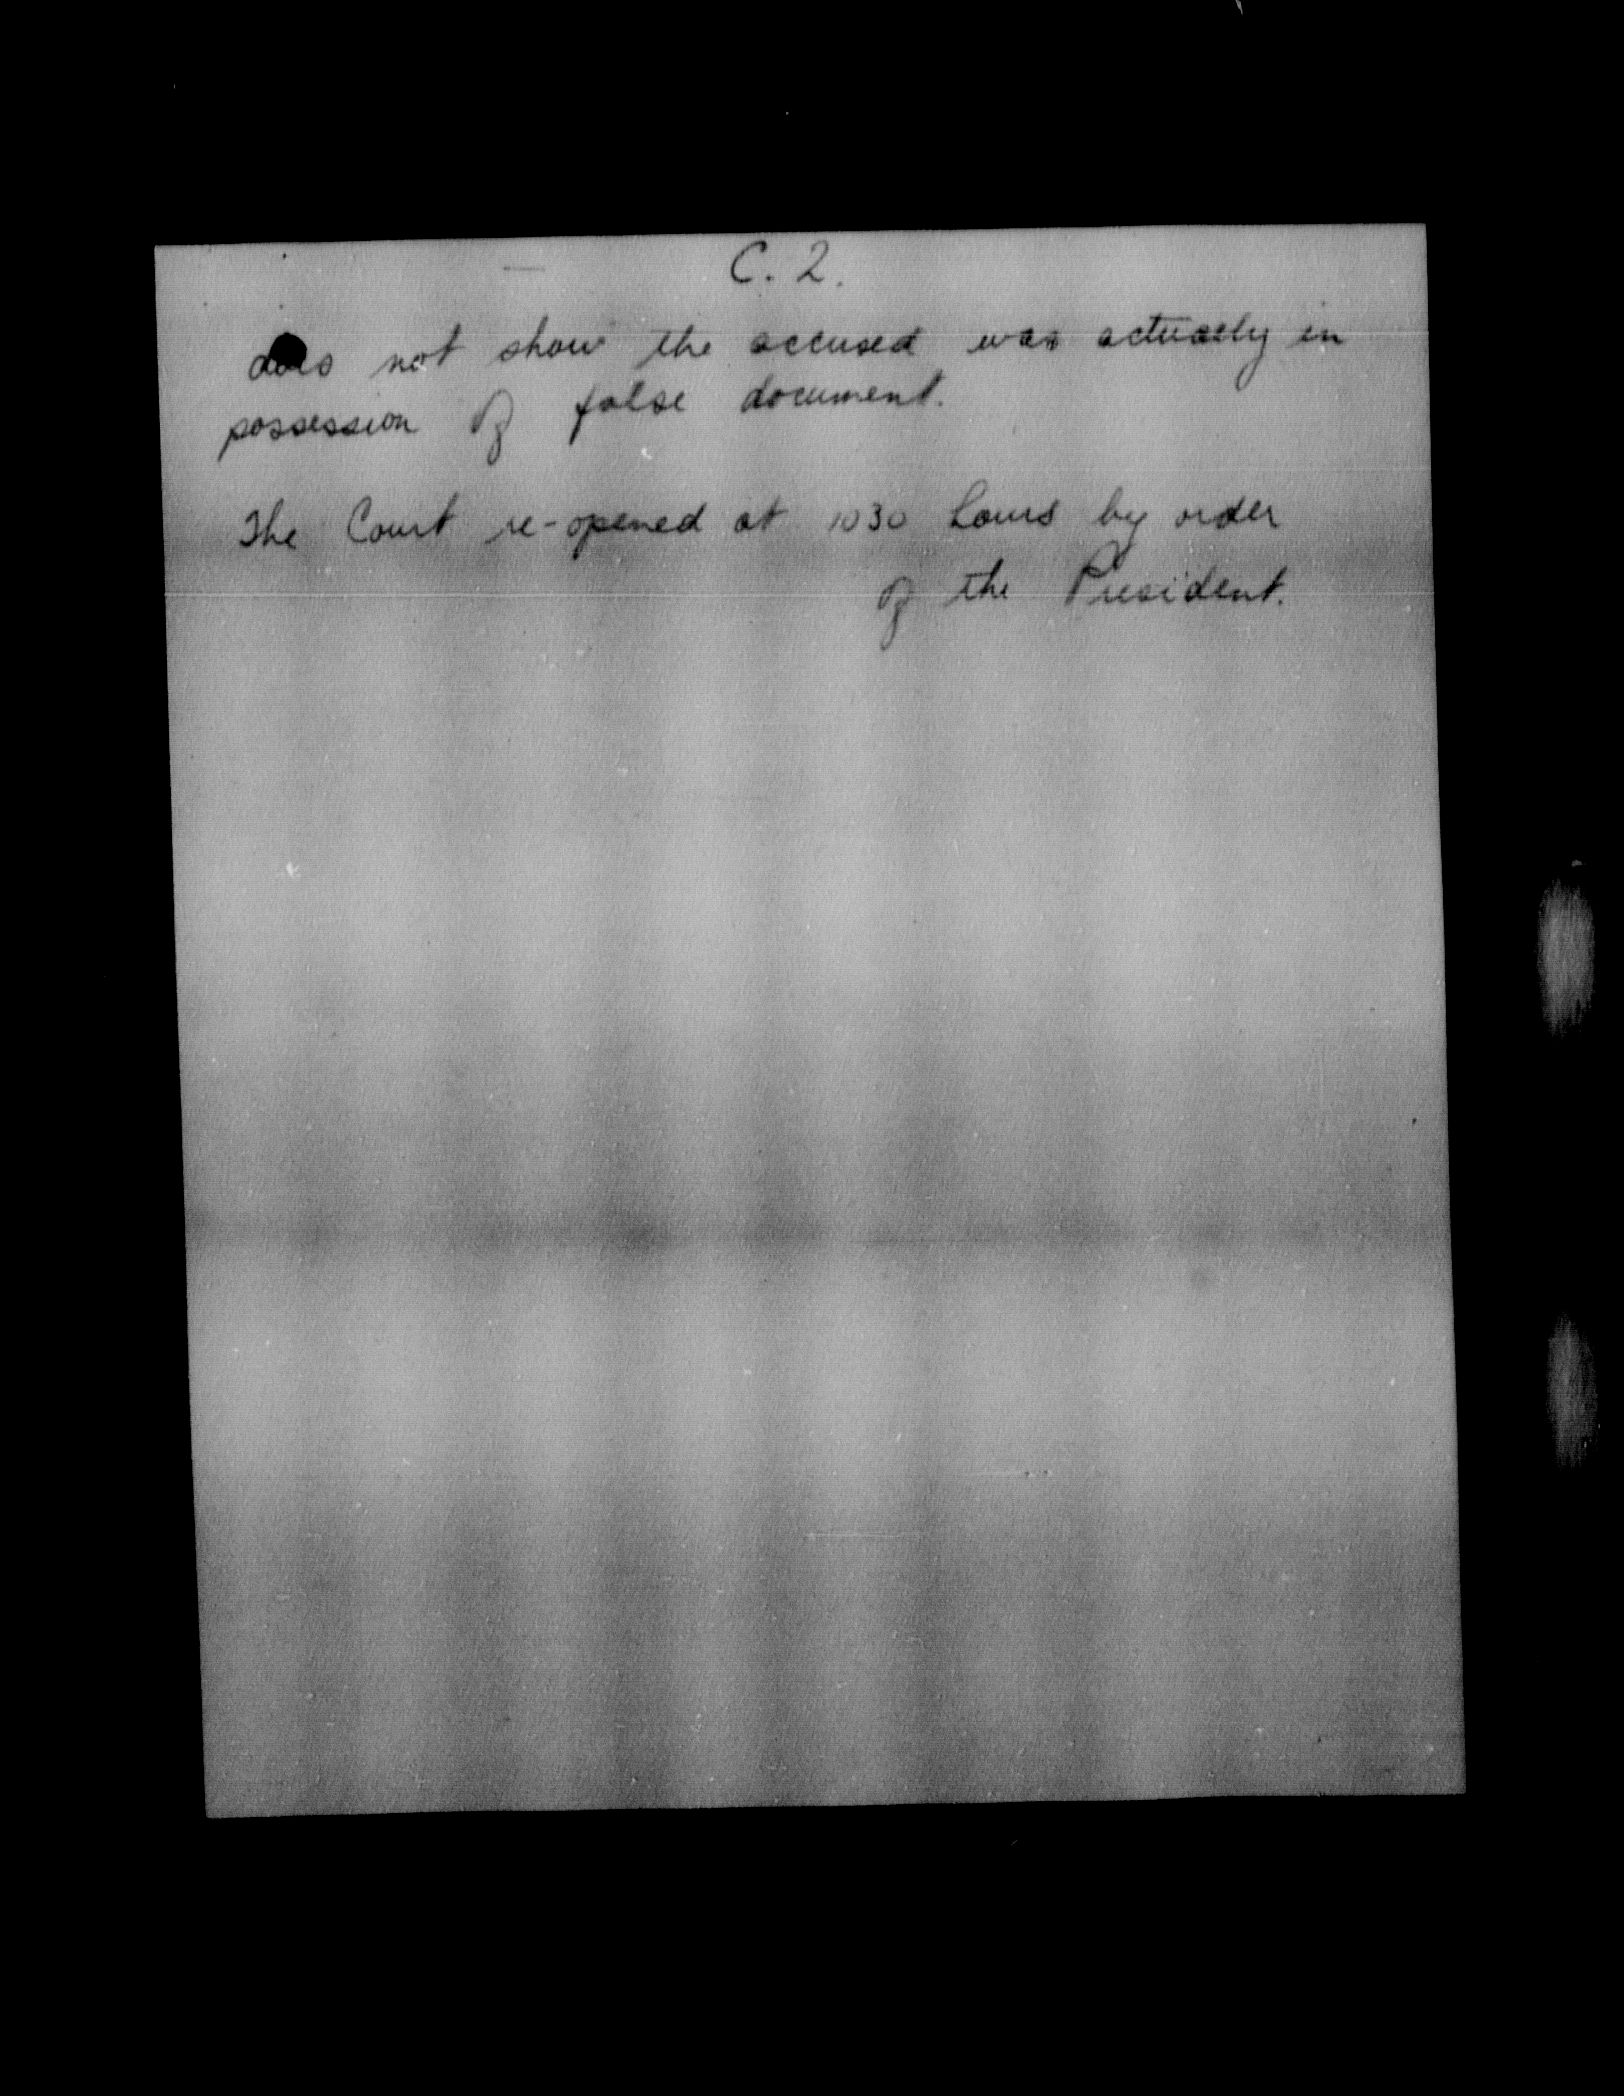 C. 2.
does not show the accused was actually in
possession of false document.
The Court re-opened at 1030 hours by order
of the President.